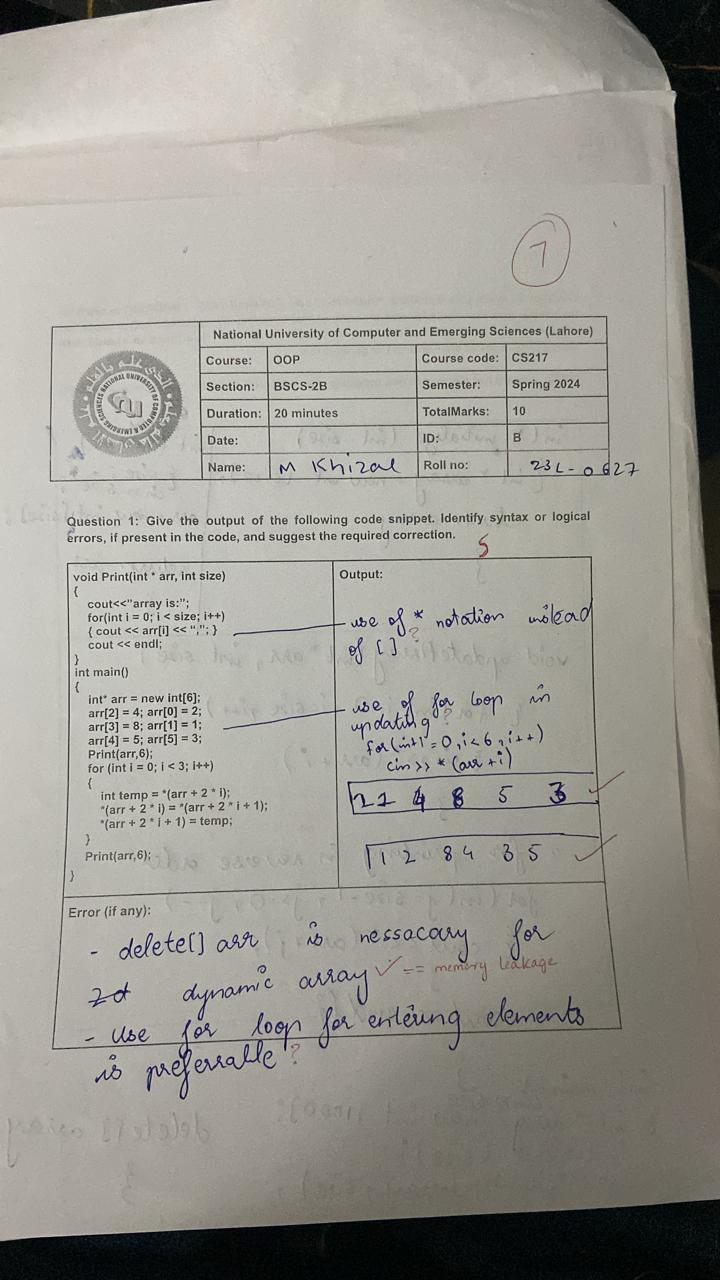 7
National University of Computer and Emerging Sciences (Lahore)
Course: OOP Course code: CS217
Section: BSCS-2B Semester: Spring 2024
Duration: 20 minutes TotalMarks: 10
Date: ID: B
Name: M Khizal Roll no: 23L-0627
Question 1: Give the output of the following code snippet. Identify syntax or logical
errors, if present in the code, and suggest the required correction.
5
void Print(int * arr, int size)
{
cout<<"array is:";
for(int i = 0; i < size; i++)
{ cout << arr[i] << ","; }
cout << endl;
}
int main()
{
int* arr = new int[6];
arr[2] = 4; arr[0] = 2;
arr[3] = 8; arr[1] = 1;
arr[4] = 5; arr[5] = 3;
Print(arr,6);
for (int i = 0; i < 3; i++)
{
int temp = *(arr + 2 * i);
*(arr + 2 * i) = *(arr + 2 * i + 1);
*(arr + 2 * i + 1) = temp;
}
Print(arr,6);
}
Output:
use of * notation instead
?
of [ ]
use of for loop in
updating ?
for(int i=0,i<6,i++)
cin>> *(arr+i)
2 1 4 8 5 3
1 2 8 4 3 5
Error (if any):
- delete[] arr is nessacary for
dynamic array ✓ == memory leakage
- Use for loop for entering elements
is preferralle ?